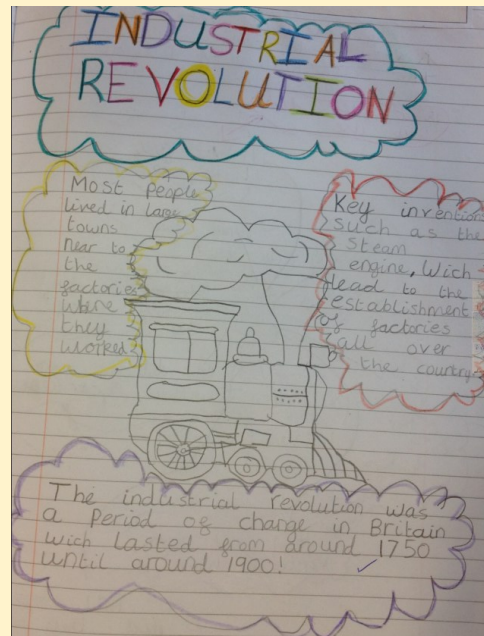 INDUSTRIAL
REVOLUTION
Most people
lived in large
towns
near to
the
factories
where
they
worked
Key invention
such as the
steam
engine, wich
lead to the
establishment
of factories
all over
the country
The industrial revolution was
a period of change in Britain
wich lasted from around 1750
until around 1900!